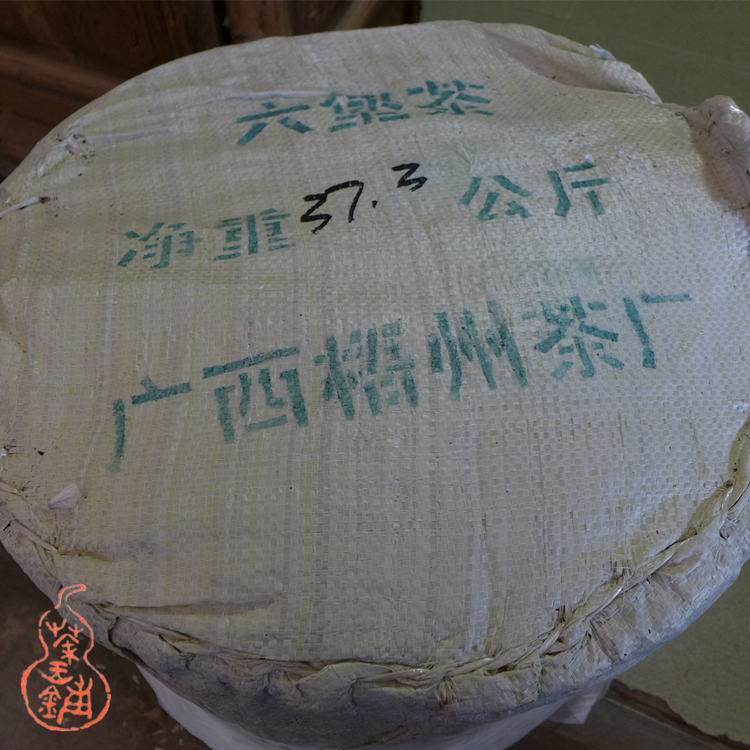 六堡茶
净重37.3公斤
广西梧州茶厂
茶王鋪